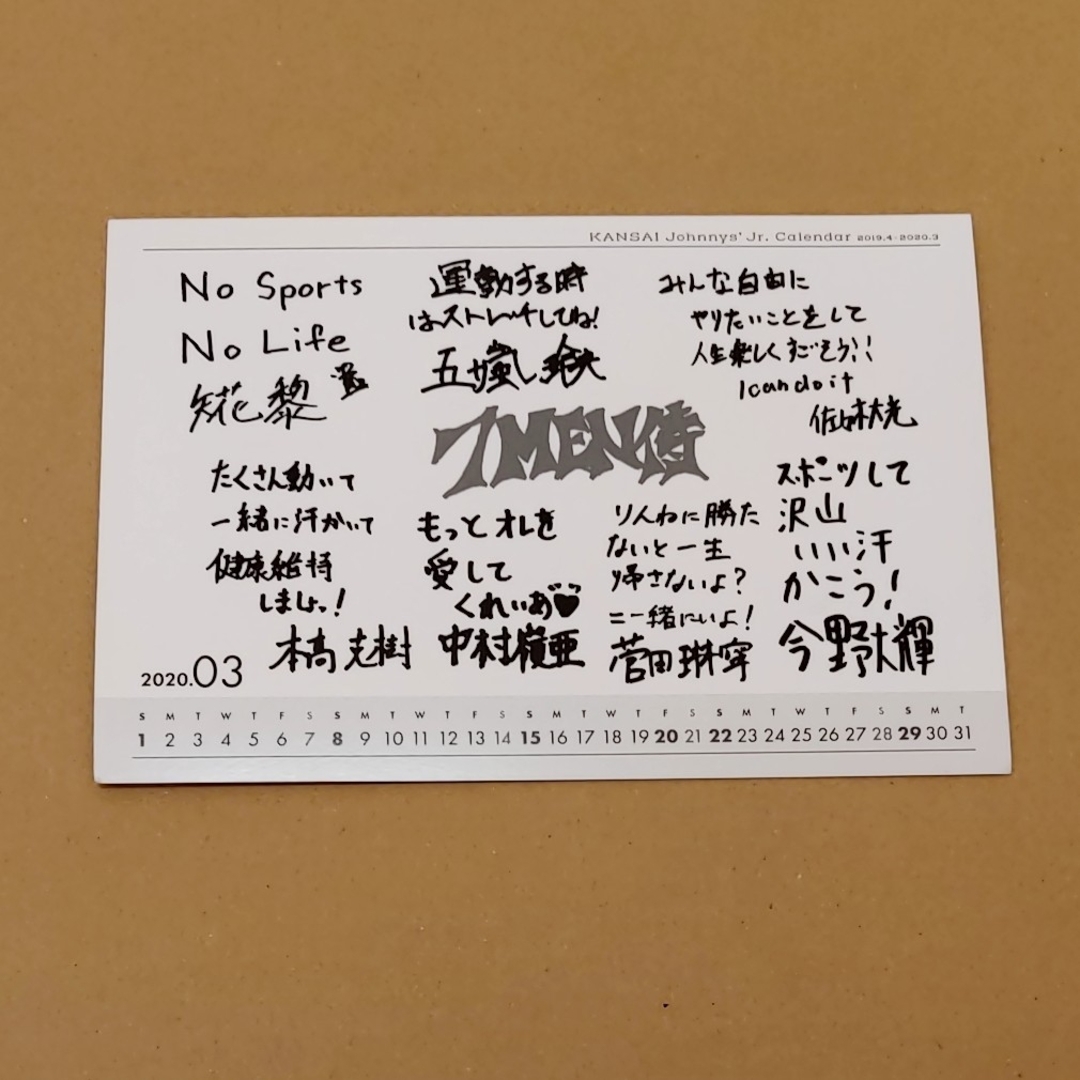 KANSAI Johnnys' Jr. Calendar 2019.4-2020.3
No Sports
No Life
矢花 黎
運動する時
はストレッチしてね!
五十嵐 玲央
みんな自由に
やりたいことをして
人生楽しくすごそう!!
I can do it
佐々木大光
7MEN侍
たくさん動いて
一緒に汗かいて
健康維持
しましょっ!
本髙 克樹
もっとオレを
愛して
くれぃあ♥
中村嶺亜
りんねに勝た
ないと一生
帰さないよ?
=一緒にいよ!
菅田琳寧
スポーツして
沢山
いい汗
かこう!
今野大輝
2020.03
S M T W T F S S M T W T F S S M T W T F S S M T W T F S S M T
1 2 3 4 5 6 7 8 9 10 11 12 13 14 15 16 17 18 19 20 21 22 23 24 25 26 27 28 29 30 31